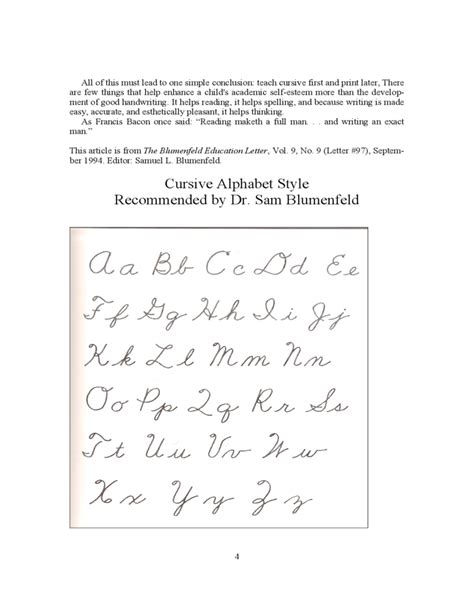 All of this must lead to one simple conclusion: teach cursive first and print later, There
are few things that help enhance a child's academic self-esteem more than the develop-
ment of good handwriting. It helps reading, it helps spelling, and because writing is made
easy, accurate, and esthetically pleasant, it helps thinking.
As Francis Bacon once said: “Reading maketh a full man. . . and writing an exact
man.”
This article is from The Blumenfeld Education Letter, Vol. 9, No. 9 (Letter #97), Septem-
ber 1994. Editor: Samuel L. Blumenfeld.
Cursive Alphabet Style
Recommended by Dr. Sam Blumenfeld
Aa Bb Cc Dd Ee
Ff Gg Hh Ii Jj
Kk Ll Mm Nn
Oo Pp Qq Rr Ss
Tt Uu Vv Ww
Xx Yy Zz
4